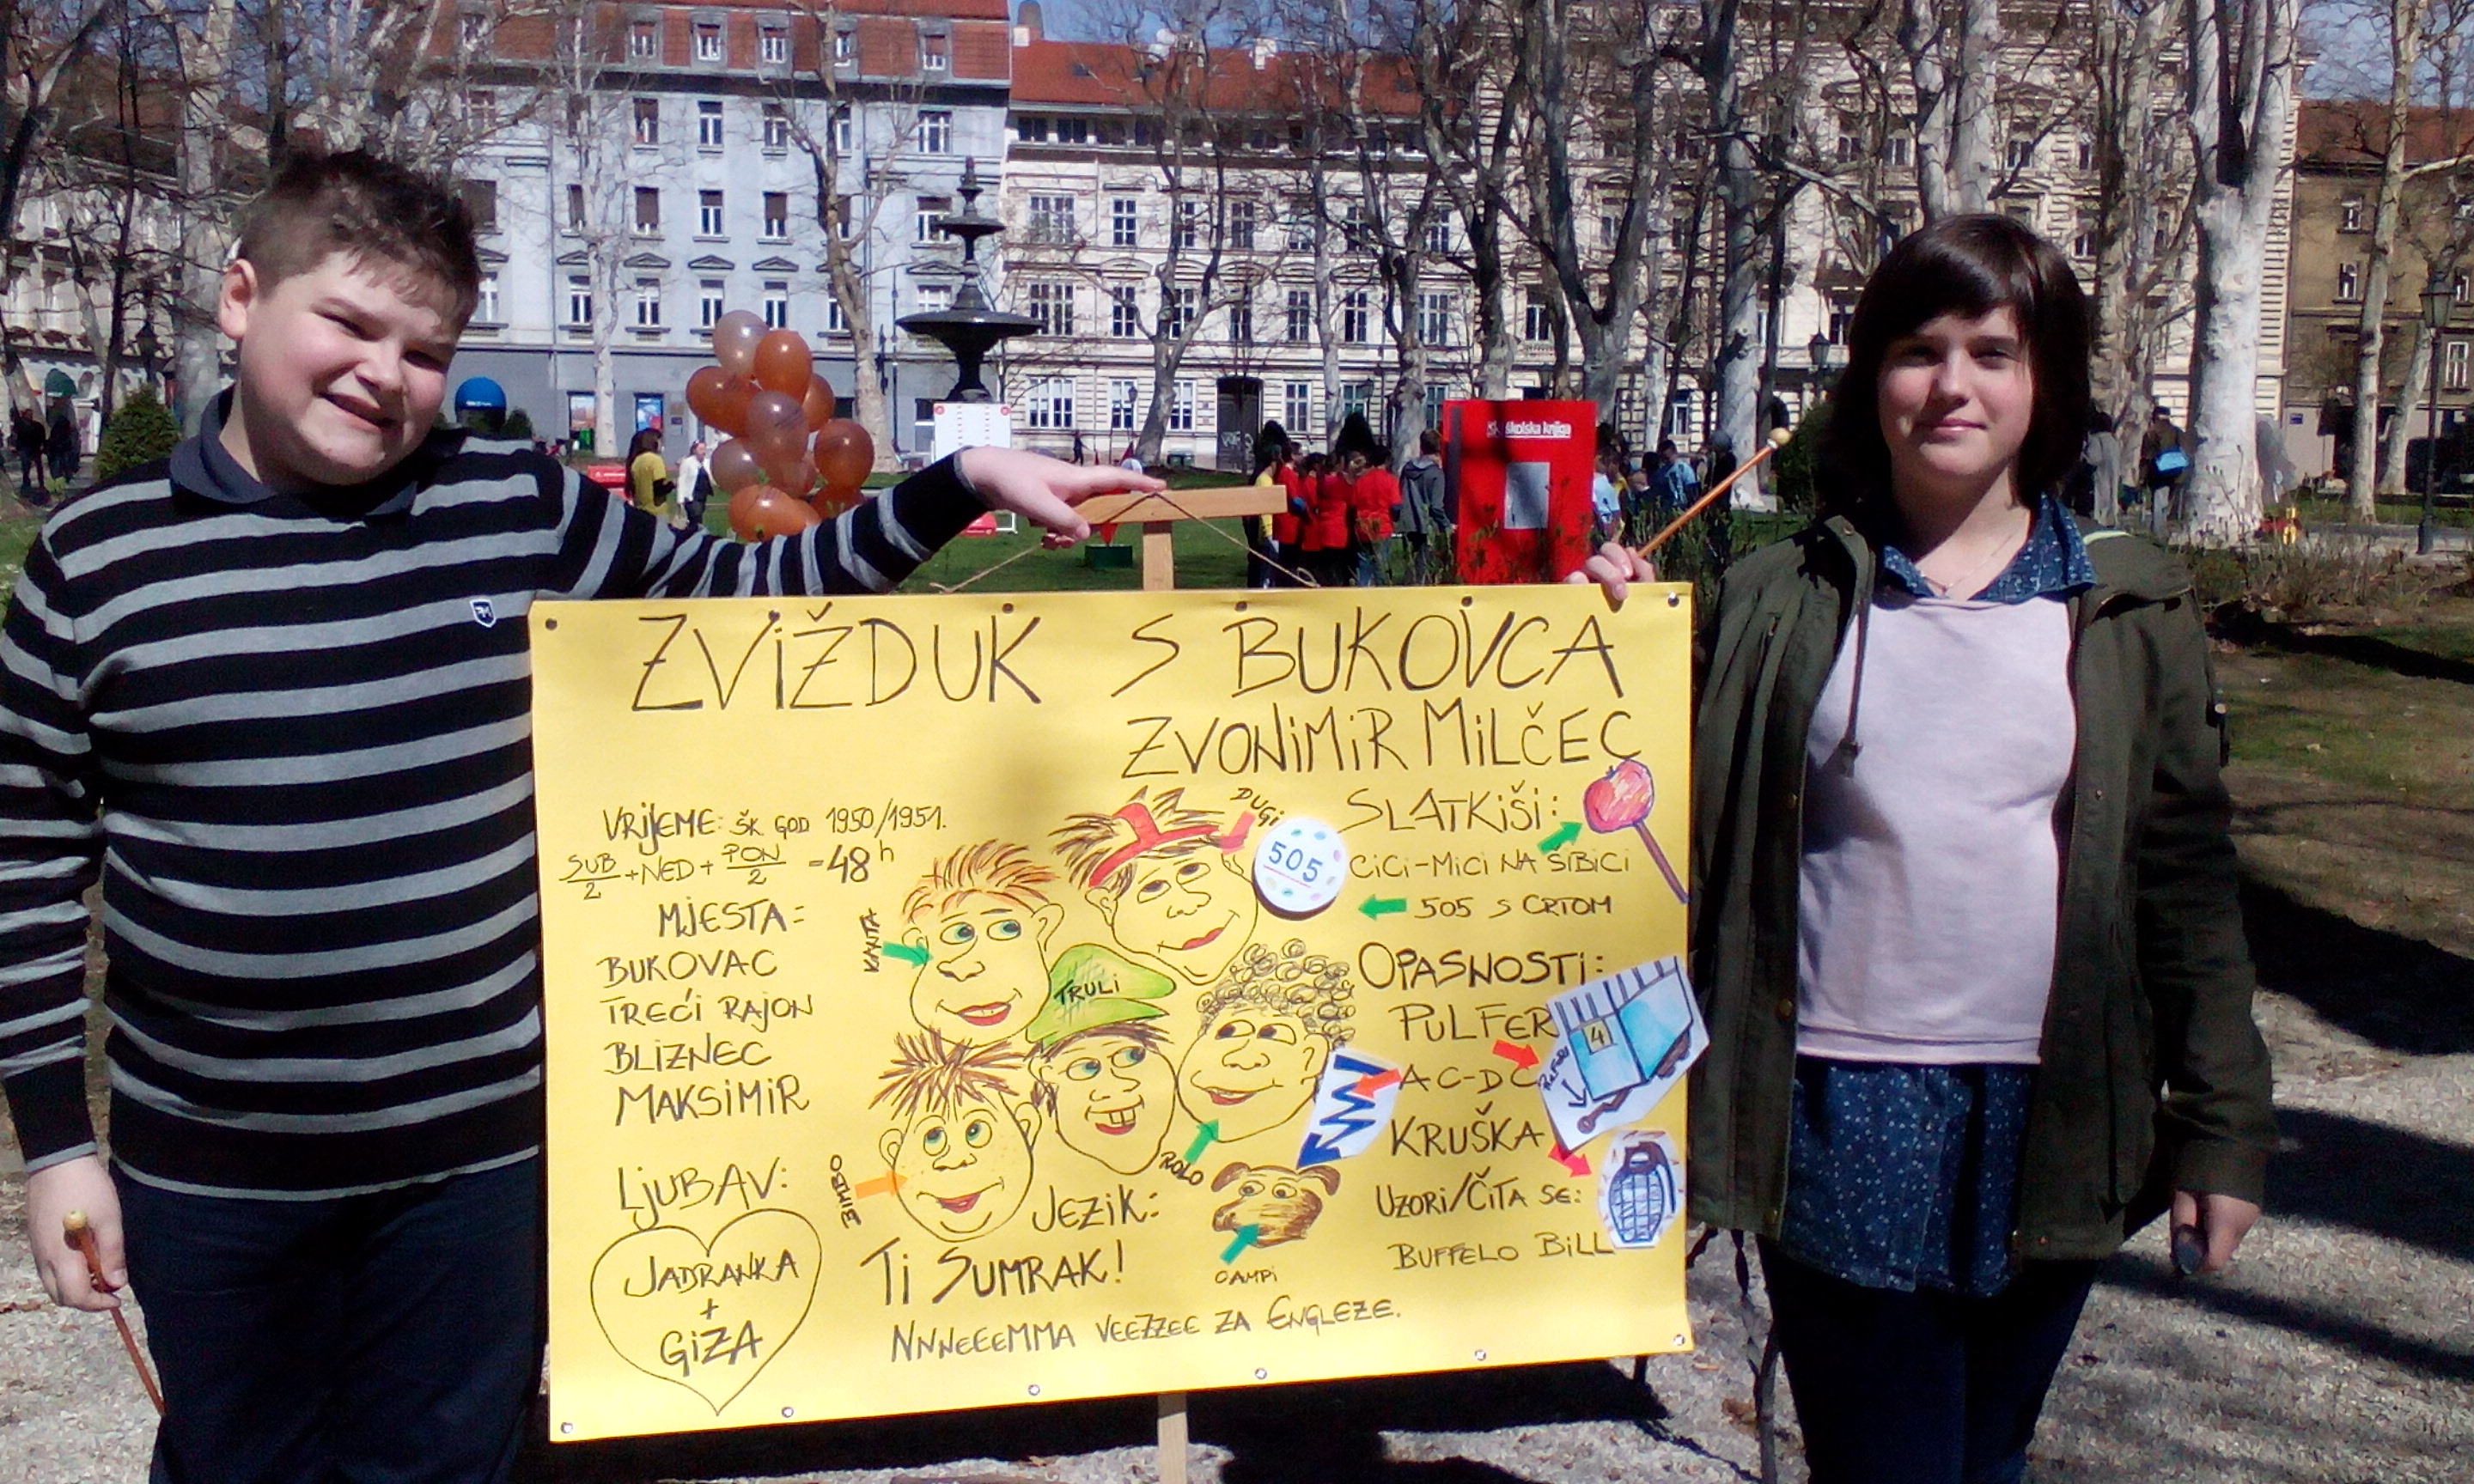 školska knjiga
ZVIŽDUK S BUKOVCA
ZVONIMIR MILČEC
VRIJEME: ŠK. GOD 1950/1951.
SUB/2 + NED + PON/2 = 48h
MJESTA:
BUKOVAC
TREĆI RAJON
BLIZNEC
MAKSIMIR
LJUBAV:
JADRANKA
+
GIZA
KANTA
DUGI
TRULI
BIMBO
ROLO
JEZIK:
TI SUMRAK!
NNNEEEMMA VEEZZEE ZA ENGLEZE.
505
SLATKIŠI:
CICI-MICI NA ŠIBICI
505 S CRTOM
OPASNOSTI:
PULFER
4
AC-DC
KRUŠKA
UZORI/ČITA SE:
BUFFELO BILL